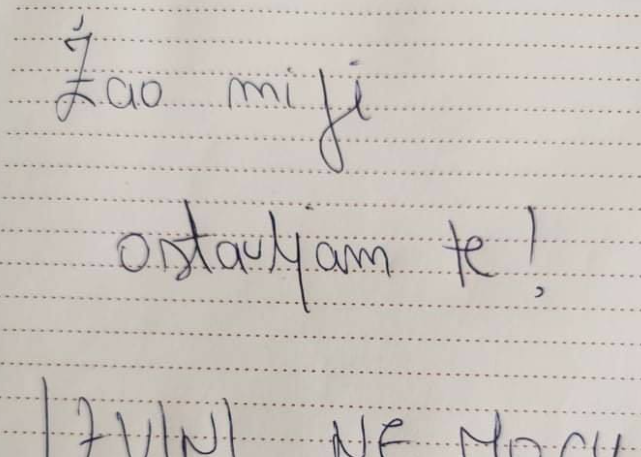 Žao mi ji
ostavljam te!
IZVINI NE MOGU